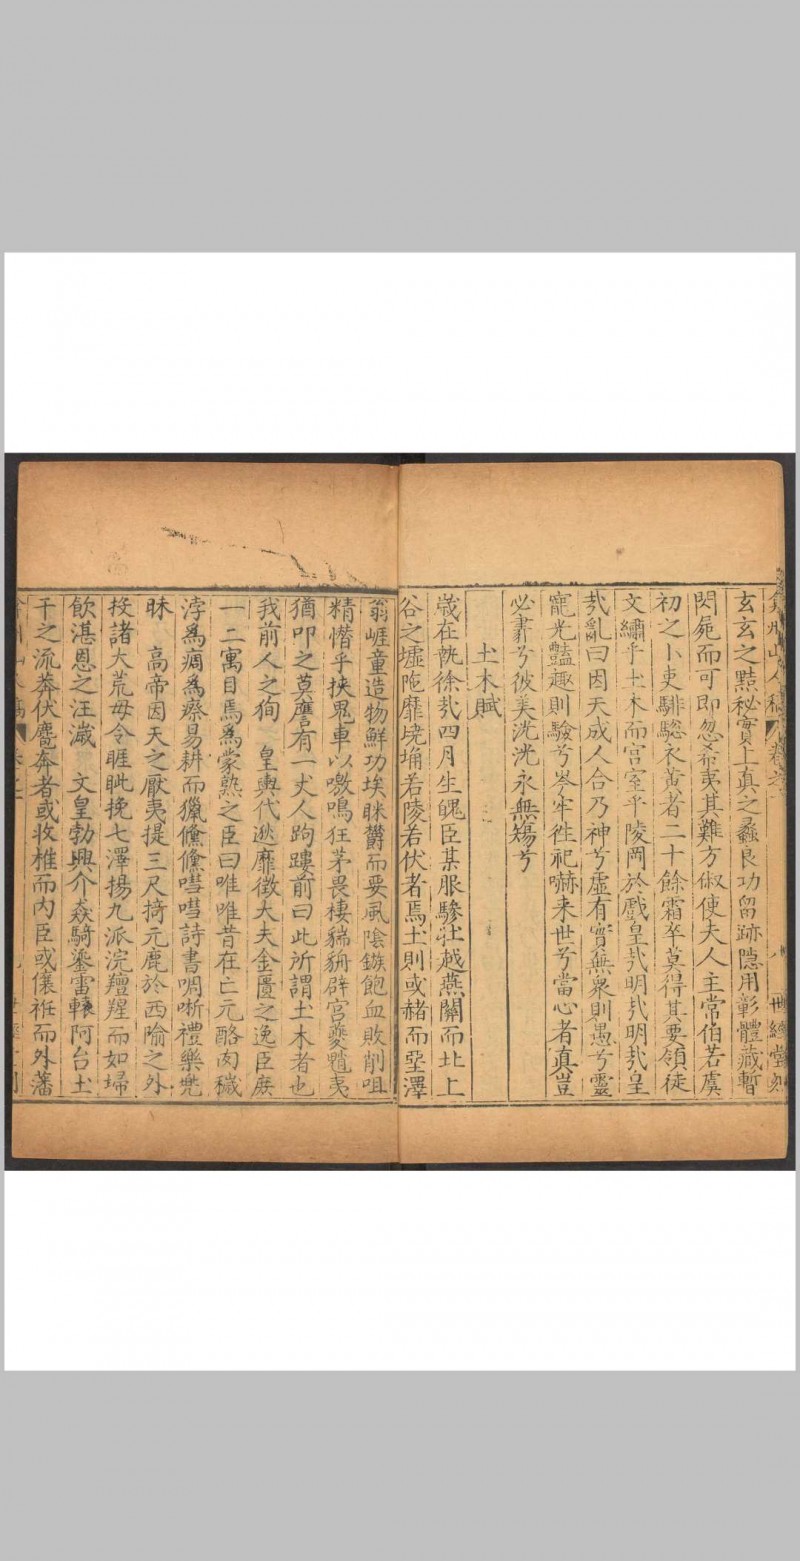 玄玄之㸃秘實上真之彞良功留跡隱用彰體藏暫
閃屍而可即忽希夷其難方俶使夫人主常伯若虞
初之小吏騑騘衣黃者二十餘霜卒莫得其要領徒
文繡乎土木而宫室乎陵岡於戲皇㢤明㢤明㢤皇
㢤亂曰因天成人合乃神兮虛有實無衆則愚兮靈
寵光豔趣則驗兮岑牢徃祀嚇来世兮當心者真豈
必肅兮彼美洸洸永無殤兮
土木賦
歲在執徐㢤四月生魄臣某服驂壯越燕關而北上
谷之墟陁靡垅埇若陵若伏者焉土則或赭而堊澤
翁崕童造物鮮功埃眯欝而要風陰鏃飽血敗削咀
精憯乎挾鬼車以噭鳴狂茅畏棲貒豣辟宫夔魖夷
猶叩之莫譍有一丈人跔躩前曰此所謂土木者也
我前人之狥 皇輿代逖靡徴大夫金匱之逸臣庶
一二寓目焉爲蒙熟之臣曰唯唯昔在亡元酪肉穢
浡爲痡爲瘵易耕而獵儵儵嘒嘒詩書啁哳禮樂兠
昧 高帝因天之厭夷提三尺掎元鹿於西隃之外
投諸大荒毋令睚眦挽七澤揚九派浣羶羶而如埽
飲湛恩之汪濊 文皇勃興介猋騎鎏雷轅阿台土
干之流莽伏麏奔者或收椎而内臣或儴袵而外藩